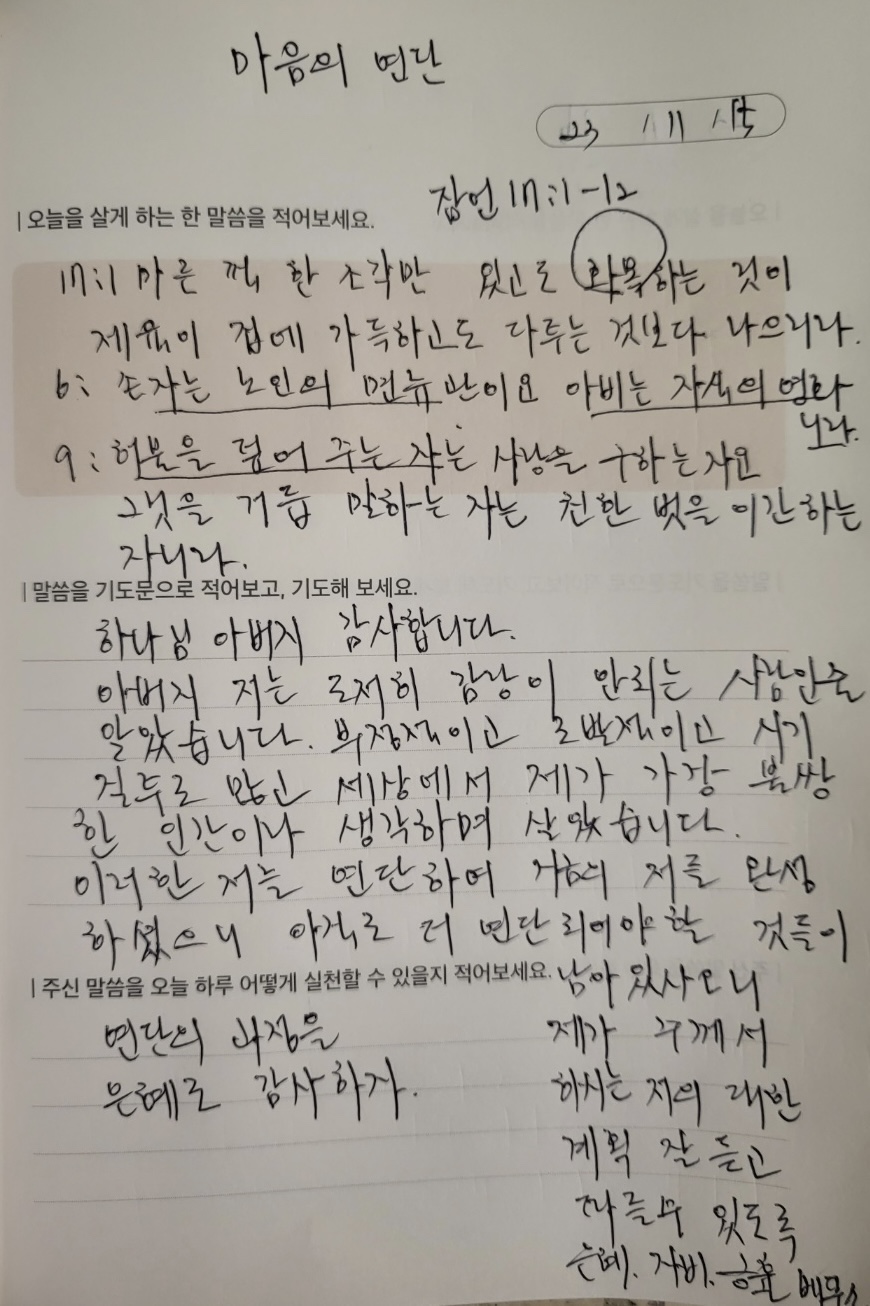 마음의 연단
23 11 15
잠언 17:1-12
| 오늘을 살게 하는 한 말씀을 적어보세요.
17:1 마른 떡 한 조각만 있고도 화목하는 것이
제육이 집에 가득하고도 다투는 것보다 나으리라.
6: 손자는 노인의 면류관이요 아비는 자식의 영화
니라.
9: 허물을 덮어 주는 자는 사랑을 구하는 자요
그것을 거듭 말하는 자는 친한 벗을 이간하는
자니라.
| 말씀을 기도문으로 적어보고, 기도해 보세요.
하나님 아버지 감사합니다.
아버지 저는 도저히 감당이 안되는 사람인줄
알았습니다. 부정적이고 도발적이고 시기
질투도 많고 세상에서 제가 가장 불쌍
한 인간이라 생각하며 살았습니다.
이러한 저를 연단하여 저를 완성
하셨으니 아직도 더 연단되어야 할 것들이
남아 있사오니
제가 주께서
하시는 저의 대한
계획 잘 듣고
따를수 있도록
은혜. 자비. 긍휼
| 주신 말씀을 오늘 하루 어떻게 실천할 수 있을지 적어보세요.
연단의 과정을
은혜로 감사하자.